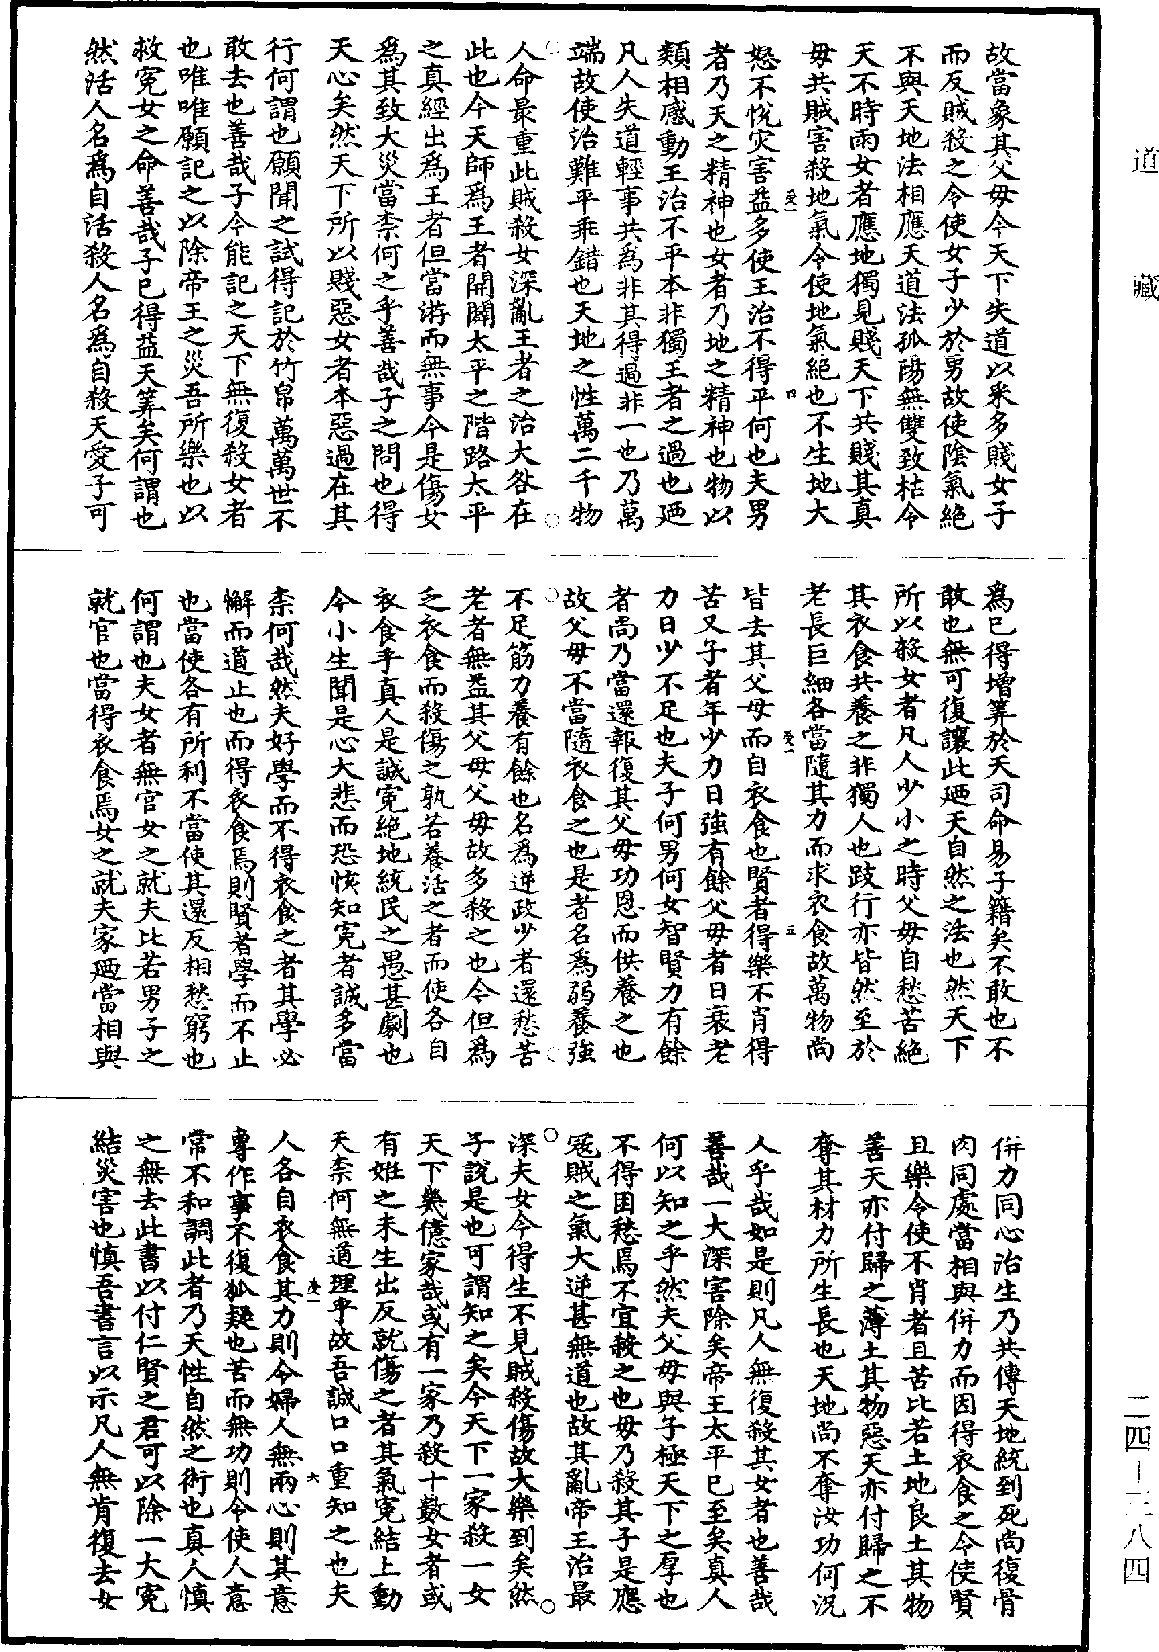 故當象其父母今天下失道以來多賤女子
而反賊殺之令使女子少於男故使陰氣絕
不與天地法相應天道法孤陽無雙致枯令
天不時雨女者應地獨見賤天下共賤其真
母共賊害殺地氣令使地氣絕也不生地大
怒不悅灾害益多使王治不得平何也夫男
者乃天之精神也女者乃地之精神也物以
類相感動王治不平本非獨王者之過也迺
凡人失道輕事共為非其得過非一也乃萬
端故使治難平乖錯也天地之性萬二千物
人命最重此賊殺女深亂王者之治大咎在
此也今天師為王者開闢太平之階路太平
之真經出為王者但當游而無事今是傷女
為其致大災當柰何之乎善哉子之問也得
天心矣然天下所以賤惡女者本惡過在其
行何謂也願聞之試得記於竹帛萬萬世不
敢去也善哉子今能記之天下無復殺女者
也唯唯願記之以除帝王之災吾所樂也以
救冤女之命善哉子已得益天筭矣何謂也
然活人名為自活殺人名為自殺天愛子可
為已得增筭於天司命易子籍矣不敢也不
敢也無可復讓此迺天自然之法也然天下
所以殺女者凡人少小之時父母自愁苦絕
其衣食共養之非獨人也跂行亦皆然至於
老長巨細各當隨其力而求衣食故萬物尚
皆去其父母而自衣食也賢者得樂不肖得
苦又子者年少力日強有餘父母者日衰老
力日少不足也夫子何男何女智賢力有餘
者尚乃當還報復其父母功恩而供養之也
故父母不當隨衣食之也是者名為弱養強
不足筋力養有餘也名為逆政少者還愁苦
老者無益其父母父母故多殺之也今但為
乏衣食而殺傷之孰若養活之者而使各自
衣食乎真人是誠冤絕地統民之愚甚劇也
今小生聞是心大悲而恐悞知冤者誠多當
柰何哉然夫好學而不得衣食之者其學必
懈而道止也而得衣食焉則賢者學而不止
也當使各有所利不當使其還反相愁窮也
何謂也夫女者無官女之就夫比若男子之
就官也當得衣食焉女之就夫家迺當相與
併力同心治生乃共傳天地統到死尚復骨
肉同處當相與併力而因得衣食之令使賢
且樂令使不肖者且苦比若土地良土其物
善天亦付歸之薄土其物惡天亦付歸之不
奪其材力所生長也天地尚不奪汝功何況
人乎哉如是則凡人無復殺其女者也善哉
善哉一大深害除矣帝王太平已至矣真人
何以知之乎然夫父母與子極天下之厚也
不得困愁焉不宜殺之也毋乃殺其子是應
寇賊之氣大逆甚無道也故其亂帝王治最
深夫女今得生不見賊殺傷故大樂到矣然
子說是也可謂知之矣今天下一家殺一女
天下幾億家哉或有一家乃殺十數女者或
有姙之未生出反就傷之者其氣冤結上動
天柰何無道理乎故吾誠口口重知之也夫
人各自衣食其力則令婦人無兩心則其意
專作事不復狐疑也苦而無功則令使人意
常不和調此者乃天性自然之術也真人慎
之無去此書以付仁賢之君可以除一大冤
結災害也慎吾書言以示凡人無肯復去女
受一
四
受一
五
受一
六
道藏
二四-三八四